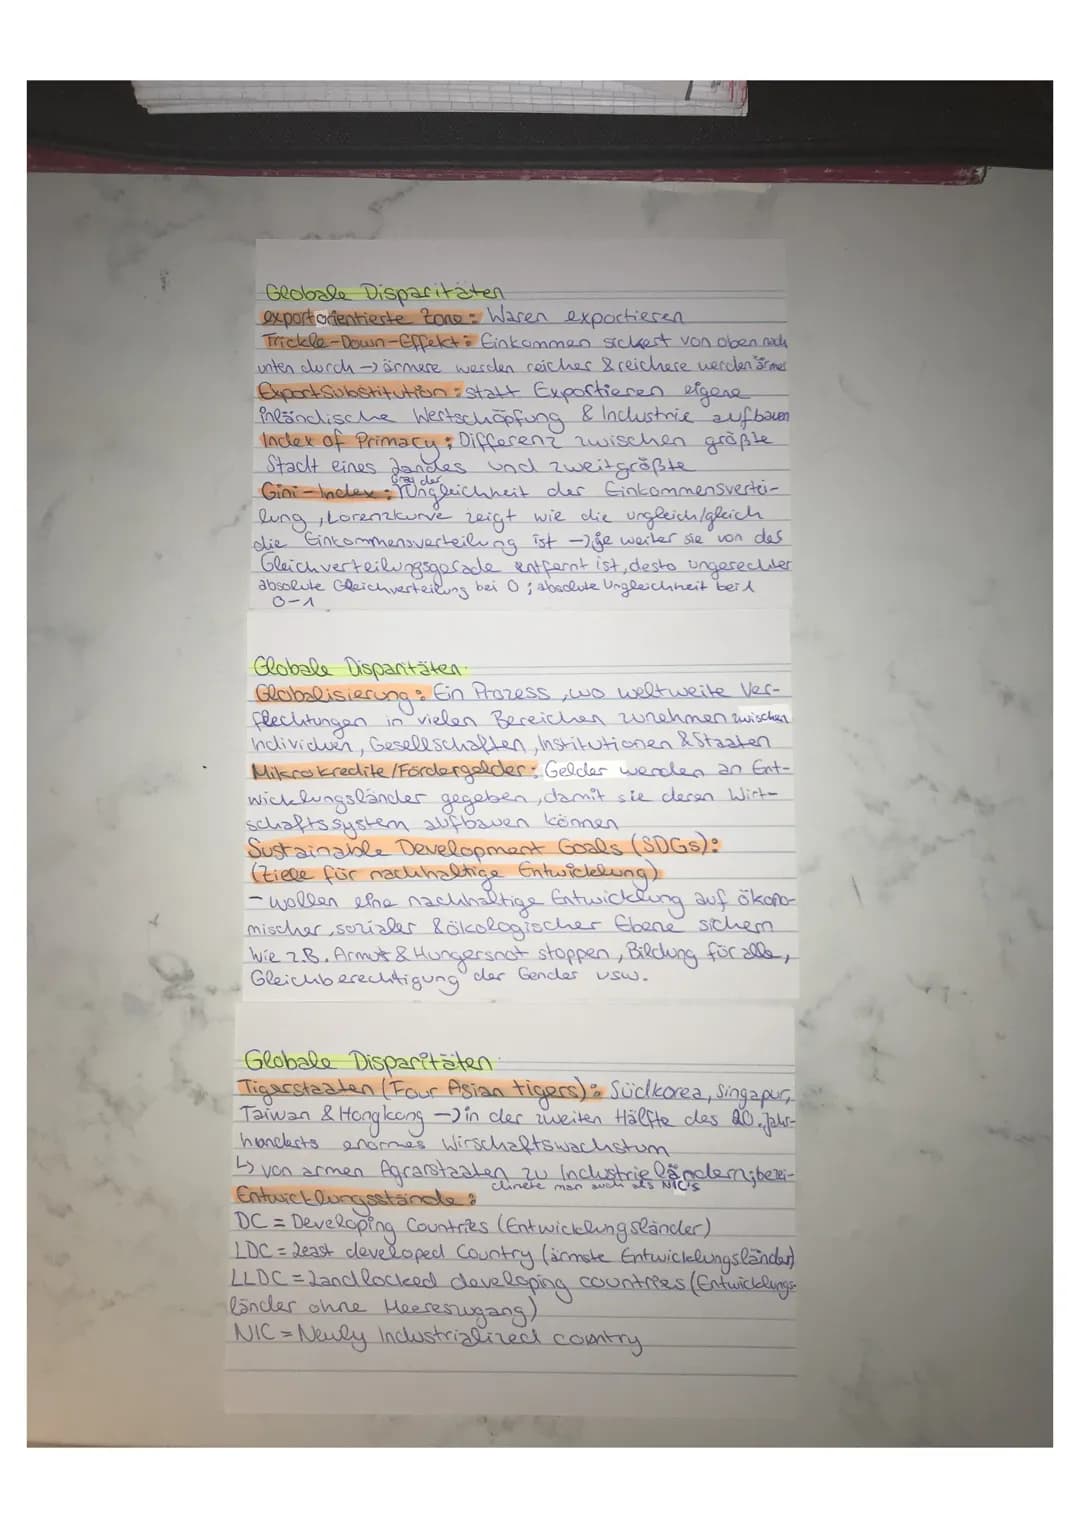 Globale Disparitäten
exportorientierte Zone: Waren exportieren
Trickle-Down-Effekt: Einkommen sickert von oben nach
unten durch -> ärmere werden reicher & reichere werden ärmer
Exportsubstitution: statt Exportieren eigene
inländische Wertschöpfung & Industrie aufbauen
Index of Primacy: Differenz zwischen größte
Stadt eines Landes und zweitgrößte
Grad der
Gini-Index: Ungleichheit der Einkommensvertei-
lung, Lorenzkurve zeigt wie die ungleich/gleich
die Einkommensverteilung ist -> je weiter sie von der
Gleichverteilungsgerade entfernt ist, desto ungerechter
absolute Gleichverteilung bei 0; absolute Ungleichheit bei 1
0-1
Globale Disparitäten
Globalisierung: Ein Prozess, wo weltweite Ver-
flechtungen in vielen Bereichen zunehmen zwischen
Individuen, Gesellschaften, Institutionen & Staaten
Mikrokredite/Fördergelder: Gelder werden an Ent-
wicklungsländer gegeben, damit sie deren Wirt-
schaftssystem aufbauen können
Sustainable Development Goals (SDGs):
(Ziele für nachhaltige Entwicklung)
- wollen eine nachhaltige Entwicklung auf ökono-
mischer, sozialer & ökologischer Ebene sichern
wie z.B. Armut & Hungersnot stoppen, Bildung für alle,
Gleichberechtigung der Gender usw.
Globale Disparitäten
Tigerstaaten (Four Asian tigers): Südkorea, Singapur,
Taiwan & Hongkong -> in der zweiten Hälfte des 20. Jahr-
hunderts enormes Wirschaftswachstum
↳ von armen Agrarstaaten zu Industrieländern; bezei-
chnete man auch als NIC's
Entwicklungsstände:
DC = Developing Countries (Entwicklungsländer)
LDC = Least developed Country (ärmste Entwicklungsländer)
LLDC = Landlocked developing countries (Entwicklungs-
länder ohne Meereszugang)
NIC = Newly Industrialized country